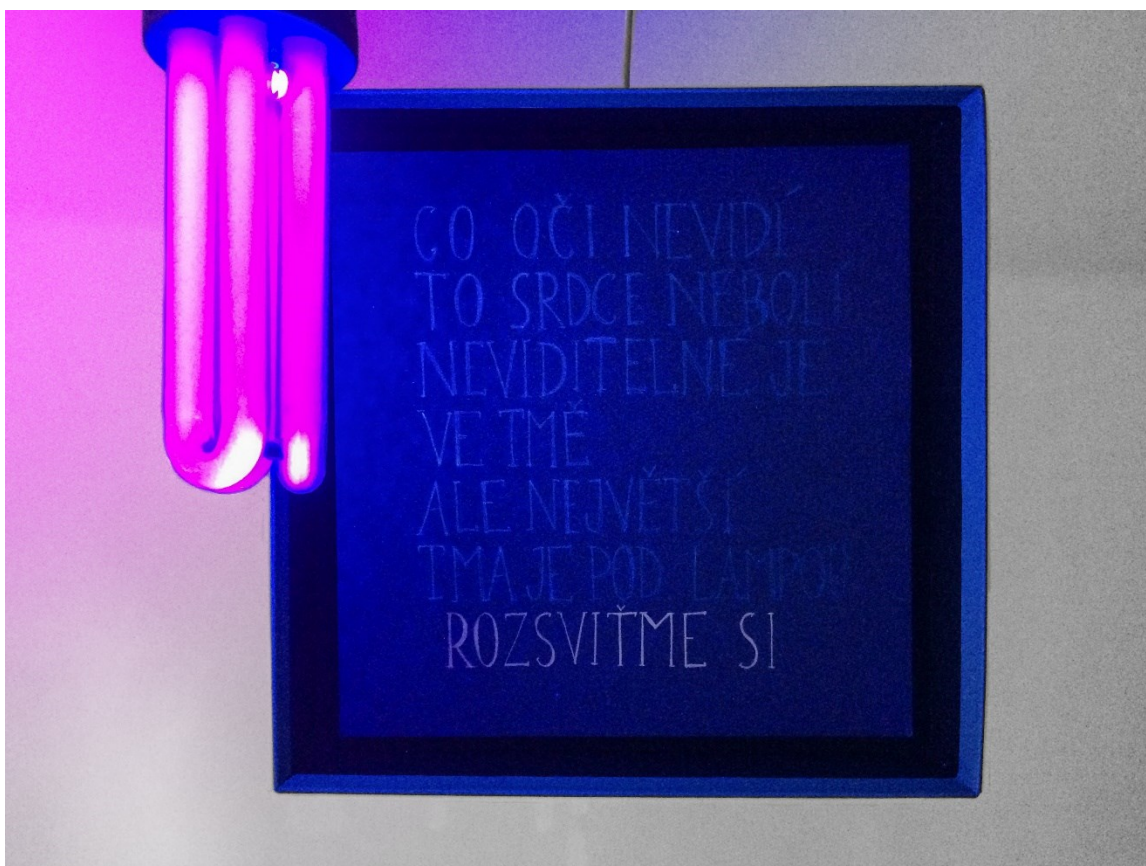 CO OČI NEVIDÍ
TO SRDCE NEBOLÍ
NEVIDITELNÉ JE
VE TMĚ
ALE NEJVĚTŠÍ
TMA JE POD LAMPOU
ROZSVIŤME SI